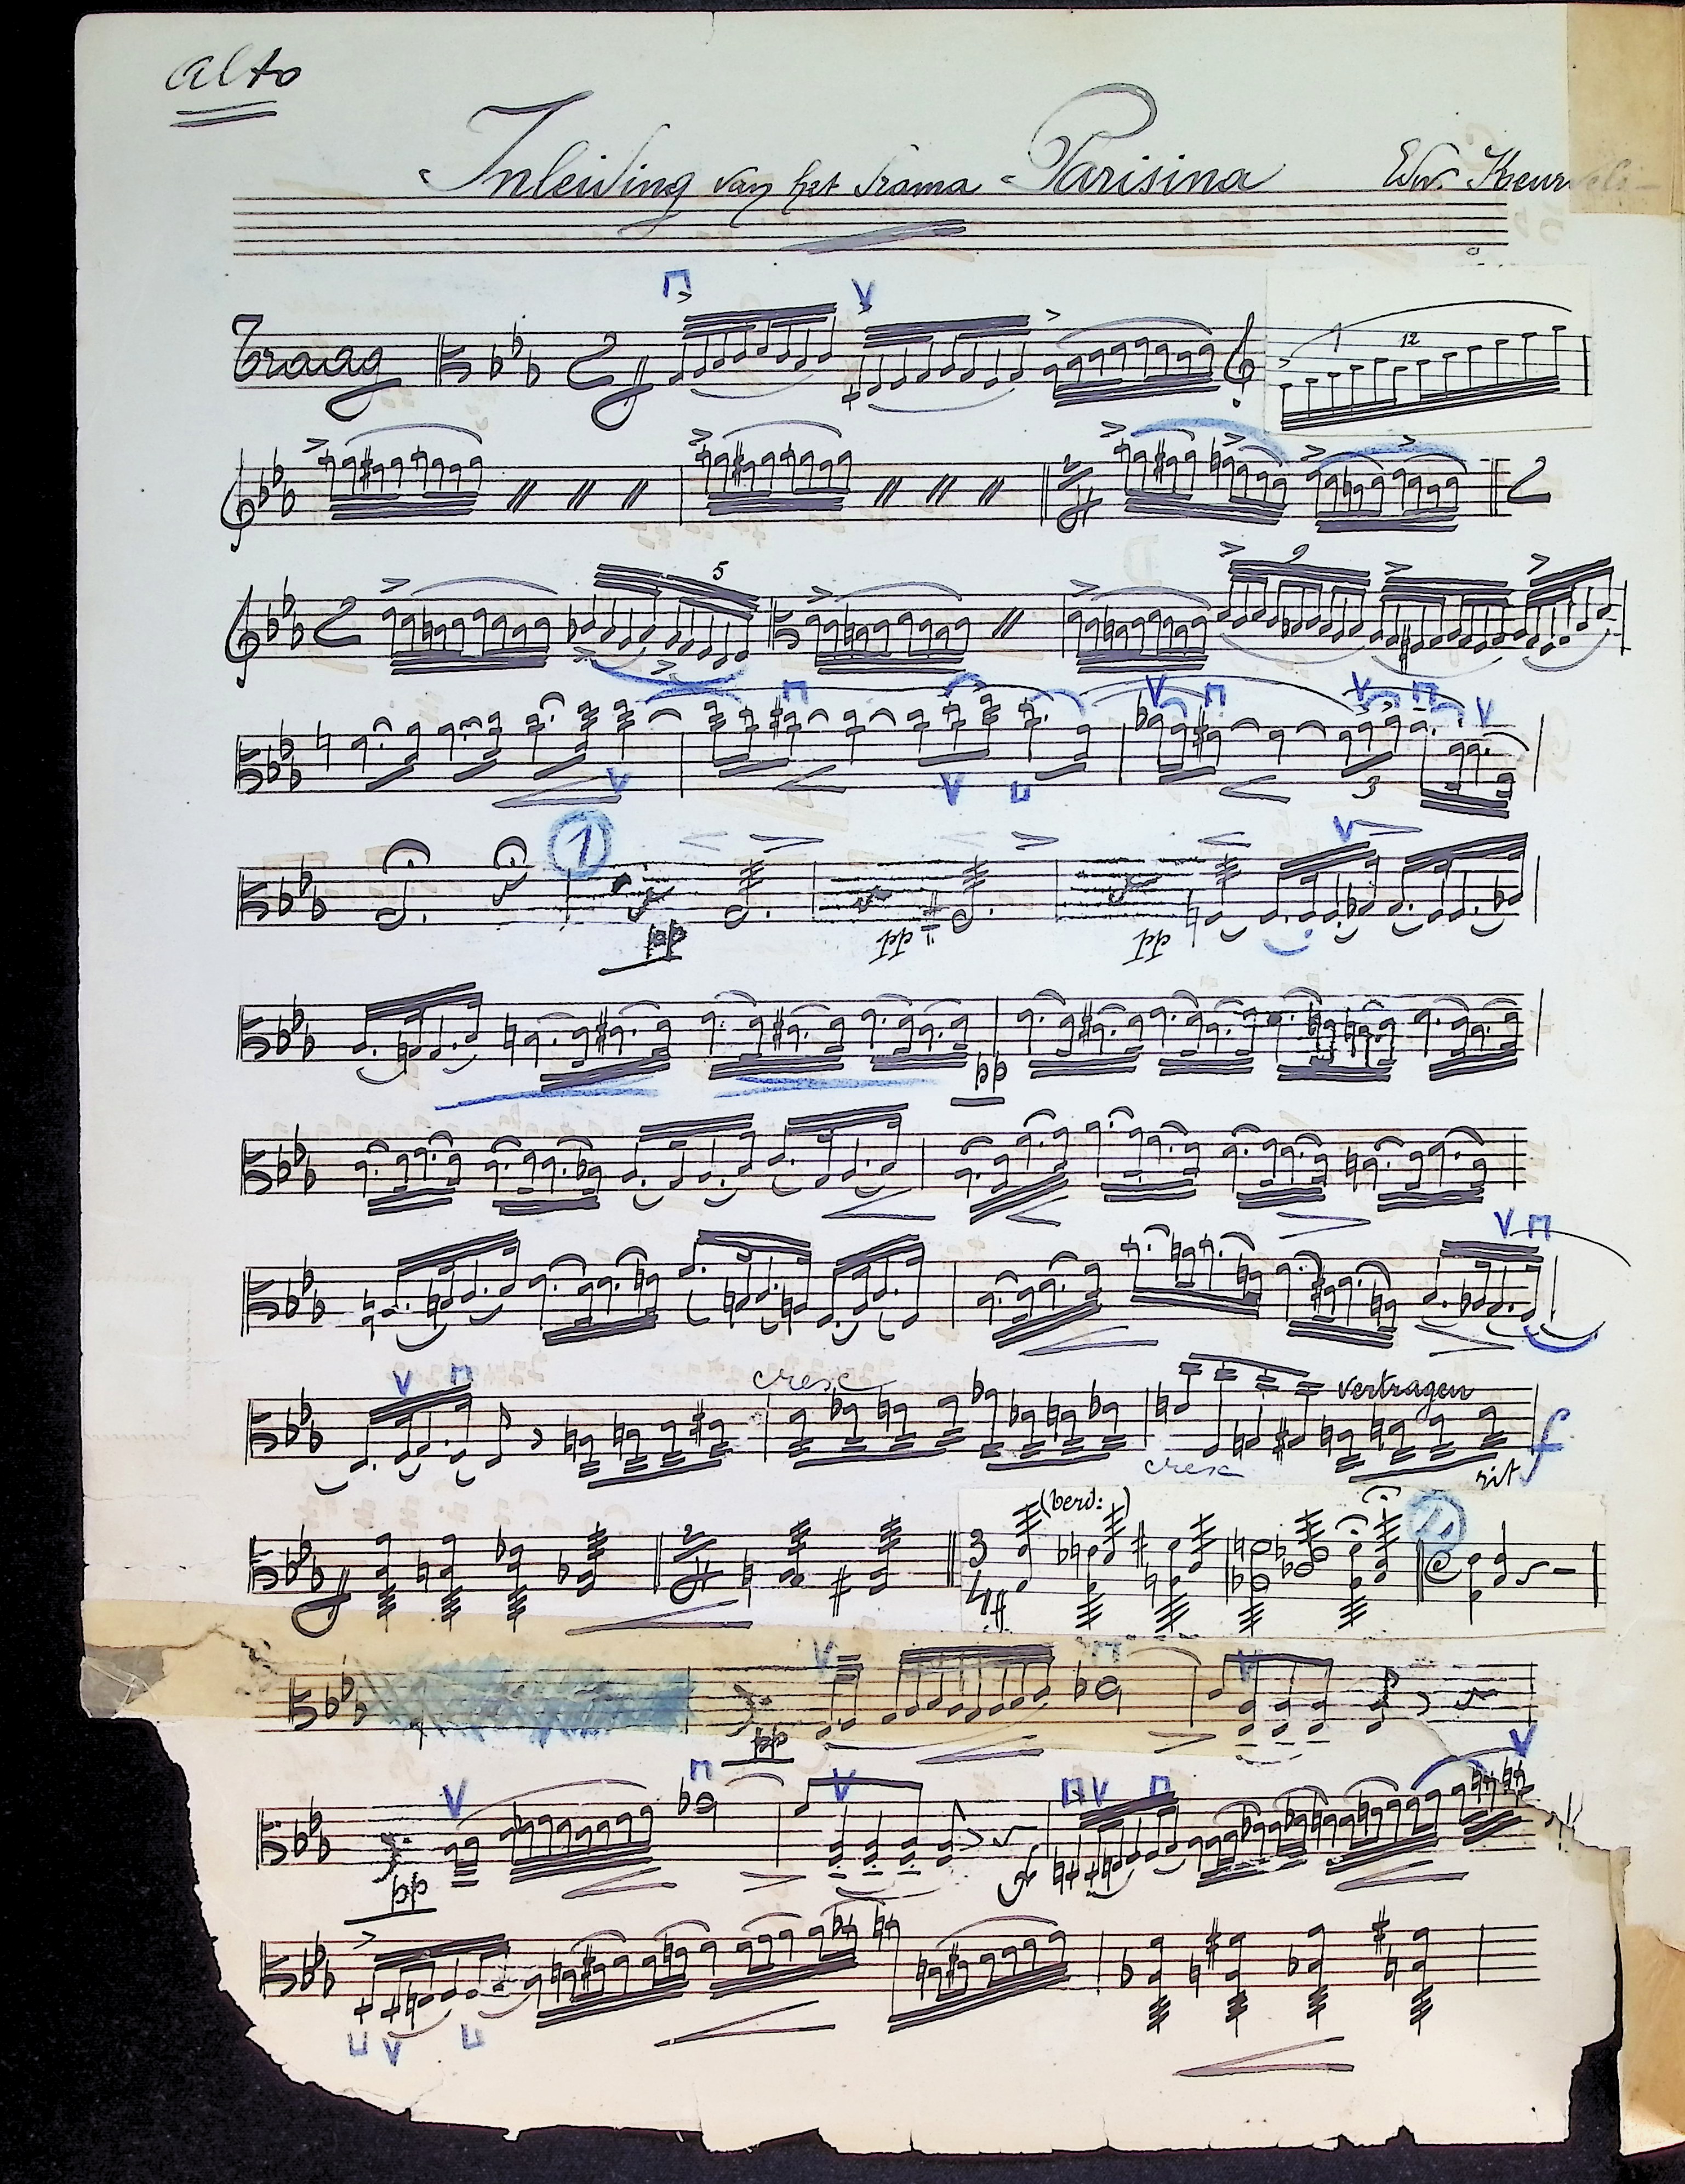 alto
Inleiding van het drama Parisina Edw. Keurvels
Traag
12
5
9
3
1
pp pp pp
pp
cresc vertragen
cresc rit f
(verd:)
3
4
2
pp
pp